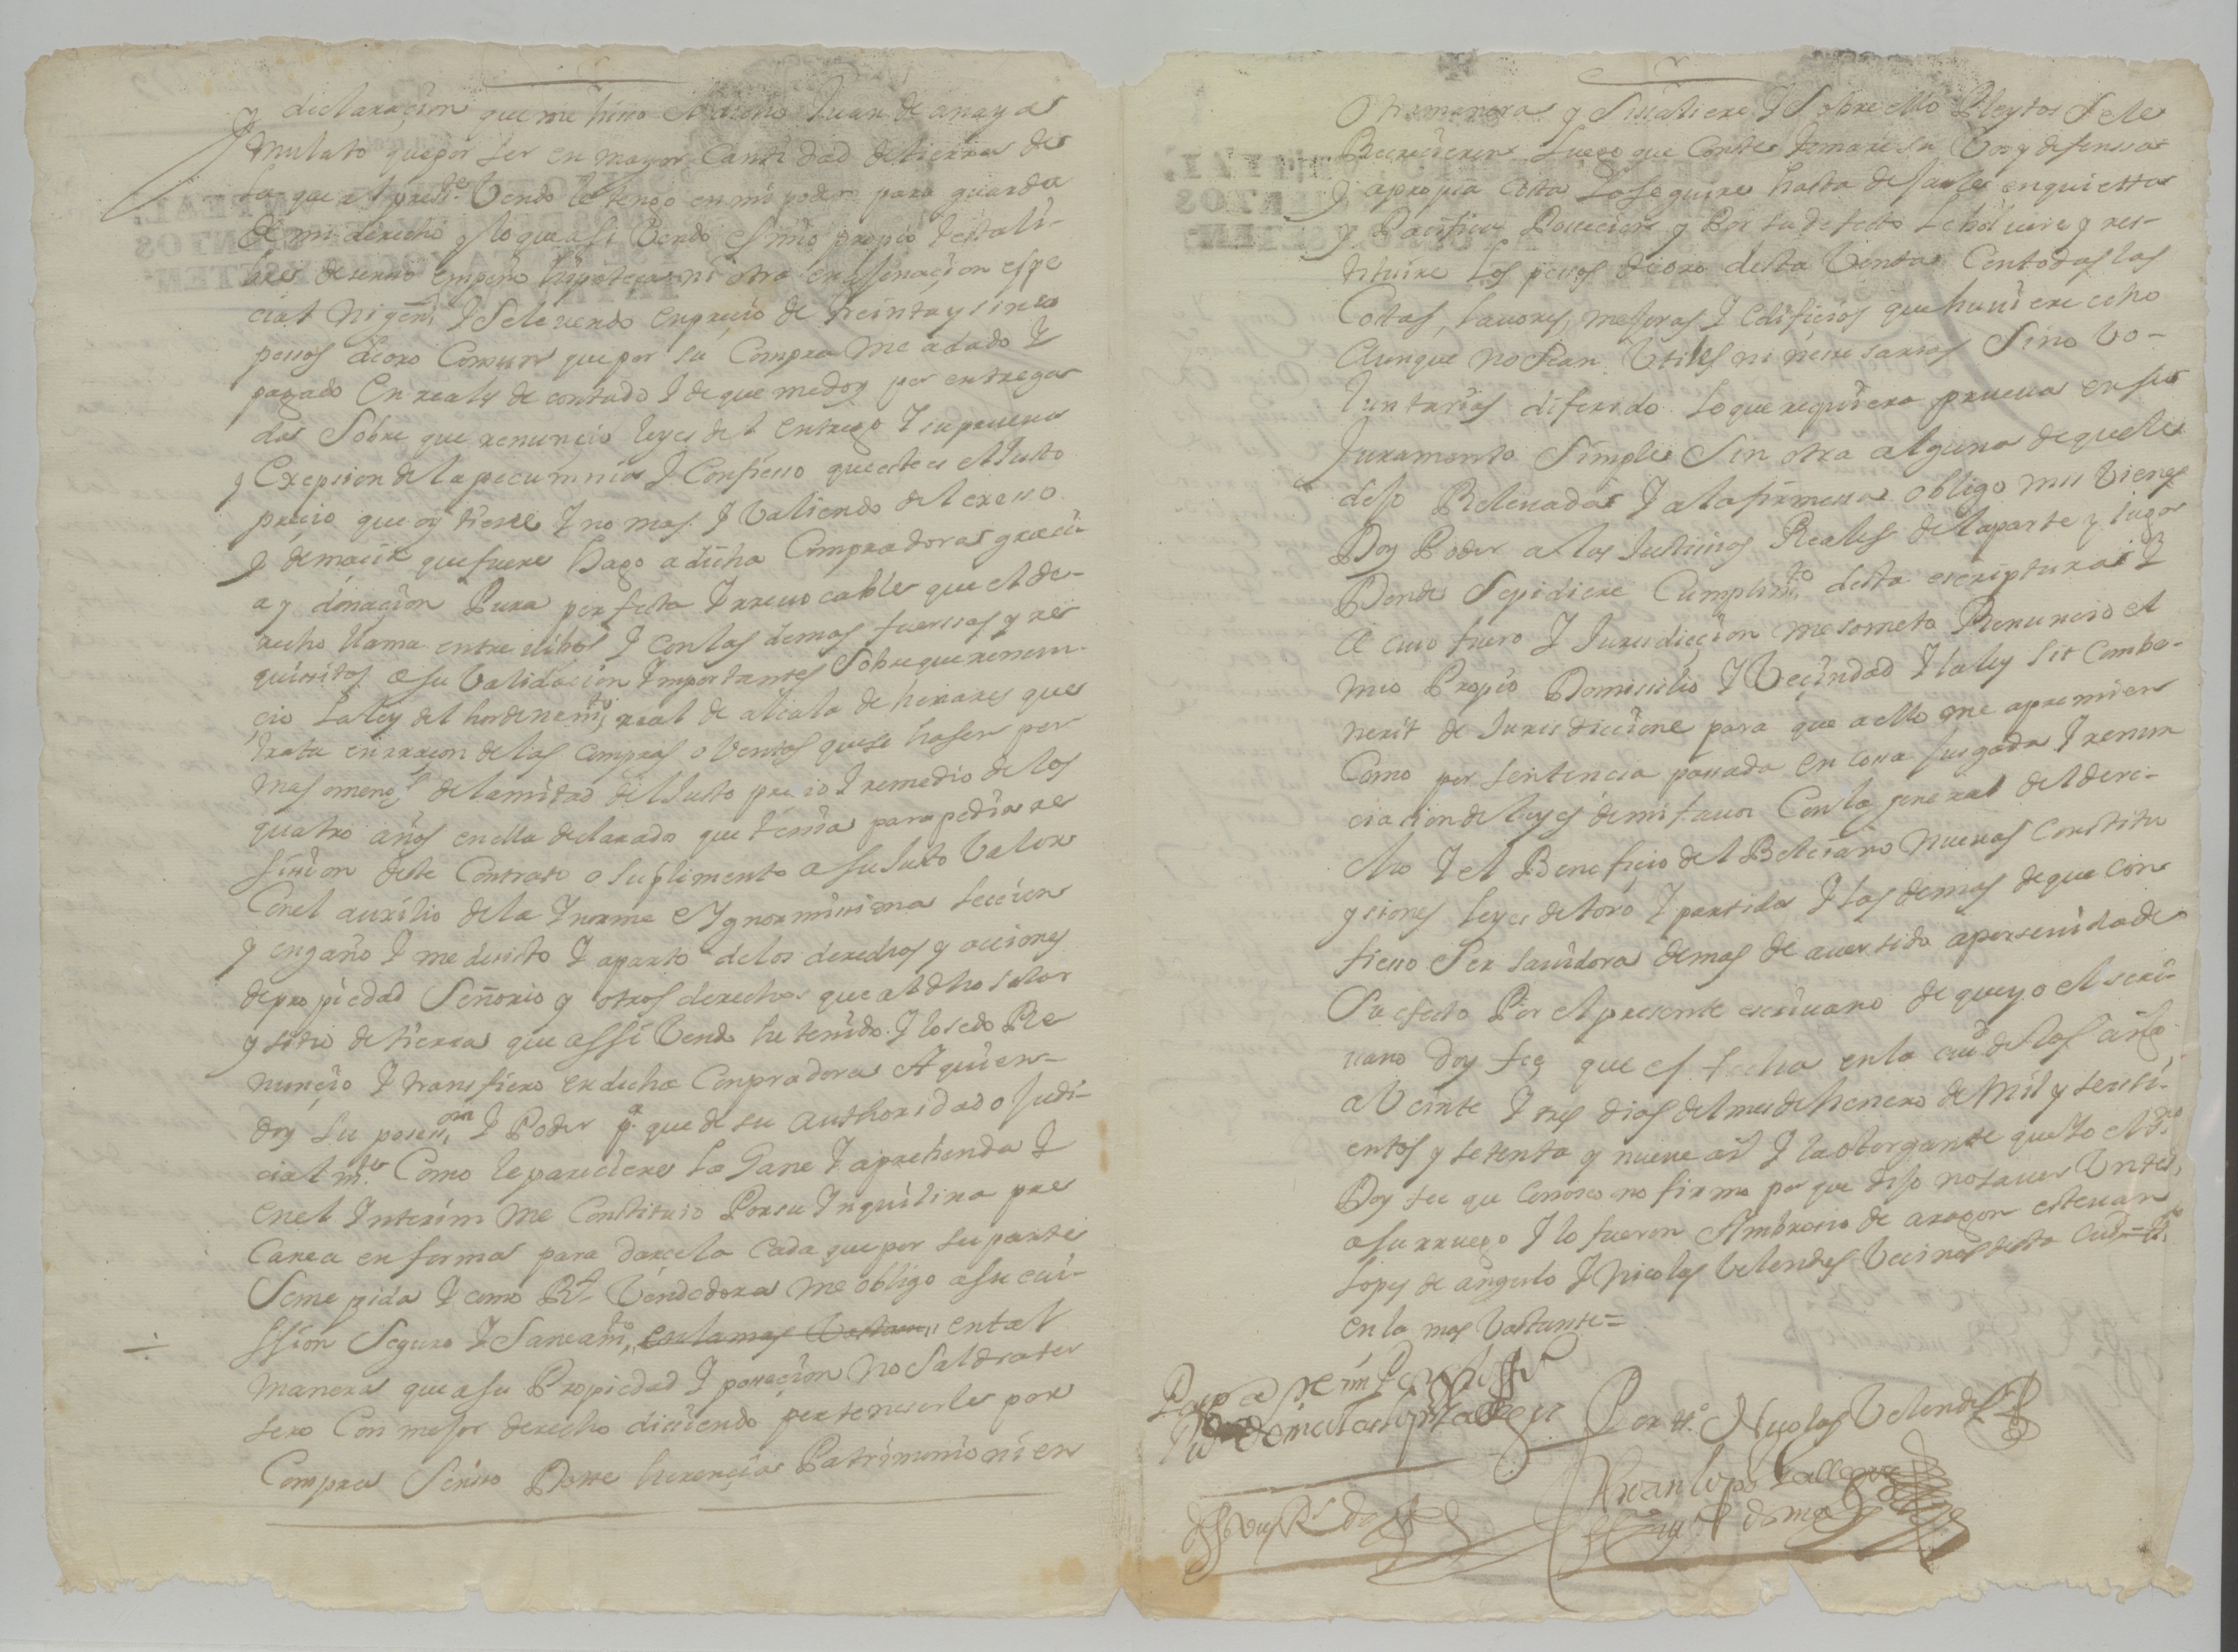 y declaraçion que me hiso el dicho Juan de anaya
mulato que por ser en mayor cantidad de tierra de
la que al press.te Vendo le tengo en mi poder para guarda
de mi derecho y lo que asi Vendo es mio propio I esta li-
bre de senso empeño hipoteca ni otra enajenaçion espe
cial ni gen.l I se le vendo en preçio de treinta y sinco
pessos de oro Comun que por su Compra me a dado I
pagado En reales de contado I de que me doy por entrega
da Sobre que renunçio leyes del entrego I su prueua
y Exepsion de la pecunnia I Confieso que este es el Justo
preçio que oy tiene I no mas I Valiendo del exesso
I demacia que fuere hago a dicha Compradora graçi
a y donaçion Pura perfecta I rreuocable que el de-
recho llama entre vibos I con las demas fuersas y re
quisitos a su Validaçion Importantes Sobre que renun-
çio La ley del hordenam.to real de alcala de henares que
trata en rraçon de las compras o Ventas que se hasen por
mas o menos de la mitad del Justo preçio I remedio de los
quatro años en ella declarado que tenia para pedir re
sision deste Contrato o suplimento a su Justo Valor
Con el auxilio de la Inorme E Ygnorminisima Lecçion
y engaño I me desisto I aparto de los derechos y acciones
de propiedad Señorio y otros derechos que al dho solar
y sitio de tierra que assi Vendo he tenido I lo sedo Re
nunçio I transfiero en dicha Conpradora A quien
doy su posess.on I Poder p.a que de su authoridad o Judi-
cialm.te Como le pareciere La Gane I aprehenda I
en el Interim me Constituio Por su Inquilina pre
Carea en forma para darcela Cada que por su parte
Seme pida I como R.l Vendedora me obligo a su eui-
ssion Seguro I Saneam.to en la mas Vastante en tal
manera que a su Propiedad I posseçion no Saldra ter
sero Con mejor derecho disiendo pertenecerle por
Compra Senso Dotte herençia Patrimonio ni en
Otra manera y Si saliere I Sobre ello Pleytos Se le
Recreçieren Luego que Conste tomare su Vos y defenssa
I a propia costa Lo seguire hasta dejarle en quietta
I Pacifica Posecion y Por su defecto le bolueré y res-
tituire Los pesos de oro desta Venta Con todas las
Costas, Lauores, mejoras I edificios que huuiere echo
Aunque no Sean Vtiles ni nesesarios Sino Vo-
luntarios diferido lo que requiera prueua en su
Juramento Simple Sin otra alguna de que le
dejo Releuada I a la firmesa obligo mis bienes
Doy Poder a las Justicias Reales de la parte y lugar
Donde Se pidiere Cumplim.to desta escriptura I
a cuio fuero I Jurisdicçion me someto Renuncio el
mio Propio Domissilio I Veçindad I la ley Sit Conbe-
nerit de Jurisdiccione para que a ello me apremien
Como por sentencia passada en cossa Jusgada I renun
ciacion de leyes de mi fauor Con la general del dere-
cho I el Beneficio del Beleiano nueuas Constitu
yciones Leyes de toro I partida I las demas de que Con
fiesso Ser sauidora demas de auer sido apersenida de
Su efecto Por el presente escriuano de que yo el scri-
uano doy fee que es fecha en la ciu.d de los ang.s
a Veinte I tres dias del mes de henero de Mil y seisci-
entos y setenta y nueue a.s I la otorgante que Yo el S.no
Doy fee que Conosco no firmo por que dijo no sauer Vn tes.o
a su rruego I lo fueron Ambrosio de aragon esteuan
Lopes de angulo I Nicolas Velendes Vecinos desta Ciud =
en la mas Vastante =
Por t.o Nicolas Velendes
Juan lopes Gallegos